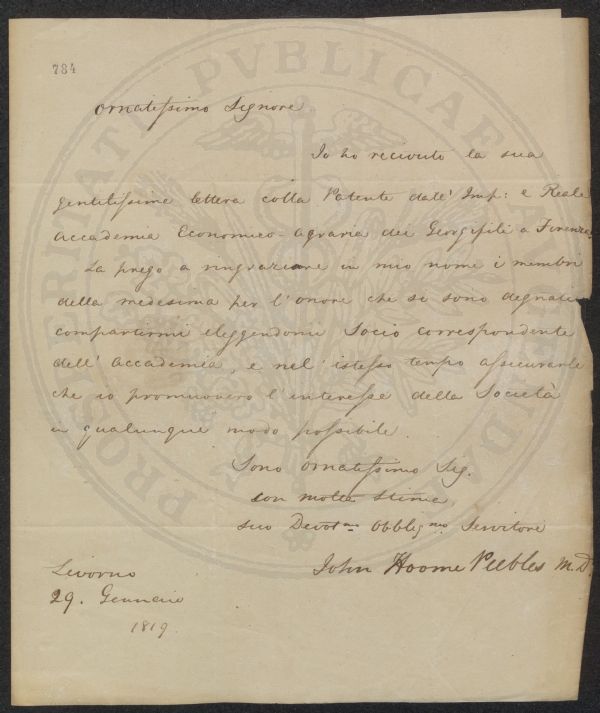 784
Ornatissimo Signore
Io ho recivuto la sua
gentilissima lettera colla Patente dall' Imp: e Reale
Accademia Economico-Agraria dei Georgofili a Firenze.
La prego a ringraziare in mio nome i membri
della medesima per l'onore che si sono degnati
compartirmi eleggendomi Socio correspondente
dell' Accademia, e nel' istesso tempo assicurarle
che io promuovero l'interesse della Società
in qualunque modo possibile.
Sono Ornatissimo Sig.
con molta stima,
suo Devotmo Obbligmo Servitore
John Hoome Peebles M.D.
Livorno
29. Gennaio
1819.
PROSPERITATI PVBLICAE AVGENDAE